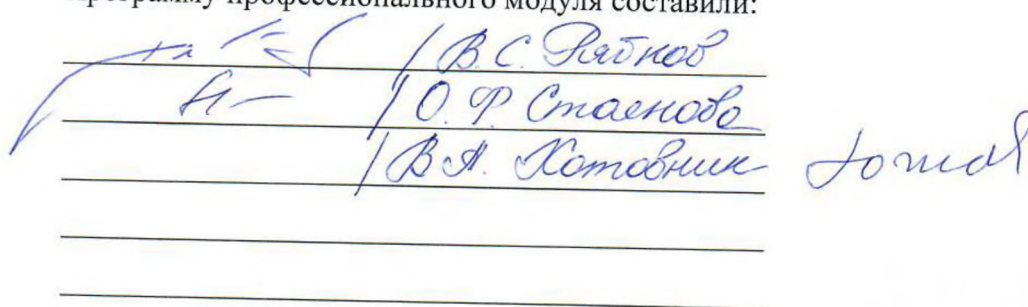 Программу профессионального модуля составили:
/ В. С. Рябков
/ О. Ф. Стаенова
/ В А. Хотовник